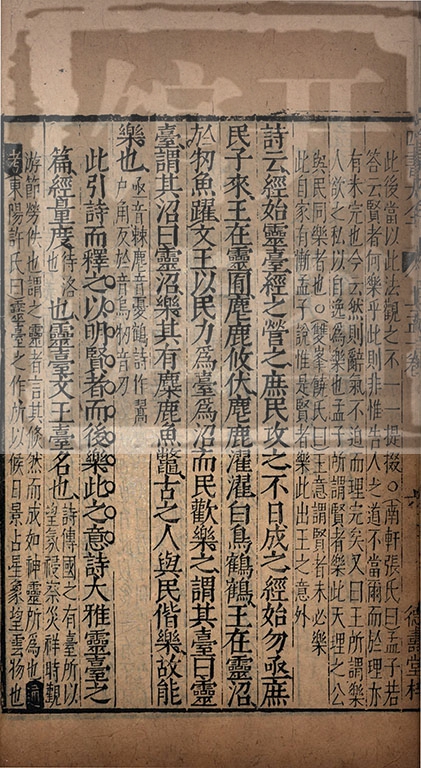 德壽堂梓
此後當以此法觀之不一一提掇○南軒張氏曰孟子若
答云賢者何樂乎此則非惟告人之道不當爾而於理亦
有未完也今云然則辭氣不迫而理完矣又曰王所謂樂
人欲之私以自逸為樂也孟子所謂賢者樂此天理之公
與民同樂者也○雙峯饒氏曰王意謂賢者未必樂
此自家有慚孟子說惟是賢者樂此出王之意外
詩云經始靈臺經之營之庶民攻之不日成之經始勿亟庶
民子來王在靈囿麀鹿攸伏麀鹿濯濯白鳥鶴鶴王在靈沼
於牣魚躍文王以民力為臺為沼而民歡樂之謂其臺曰靈
臺謂其沼曰靈沼樂其有麋鹿魚鼈古之人與民偕樂故能
樂也亟音棘麀音憂鶴詩作翯戶角反於音烏牣音刃
此引詩而釋之以明賢者而後樂此之意詩大雅靈臺之
篇經量度待洛反也靈臺文王臺名也詩傳國之有臺所以望氛祲察災祥時觀
游節勞佚也謂之靈者言其倏然而成如神靈所為也
考東陽許氏曰靈臺之作所以候日景占星象望雲物也